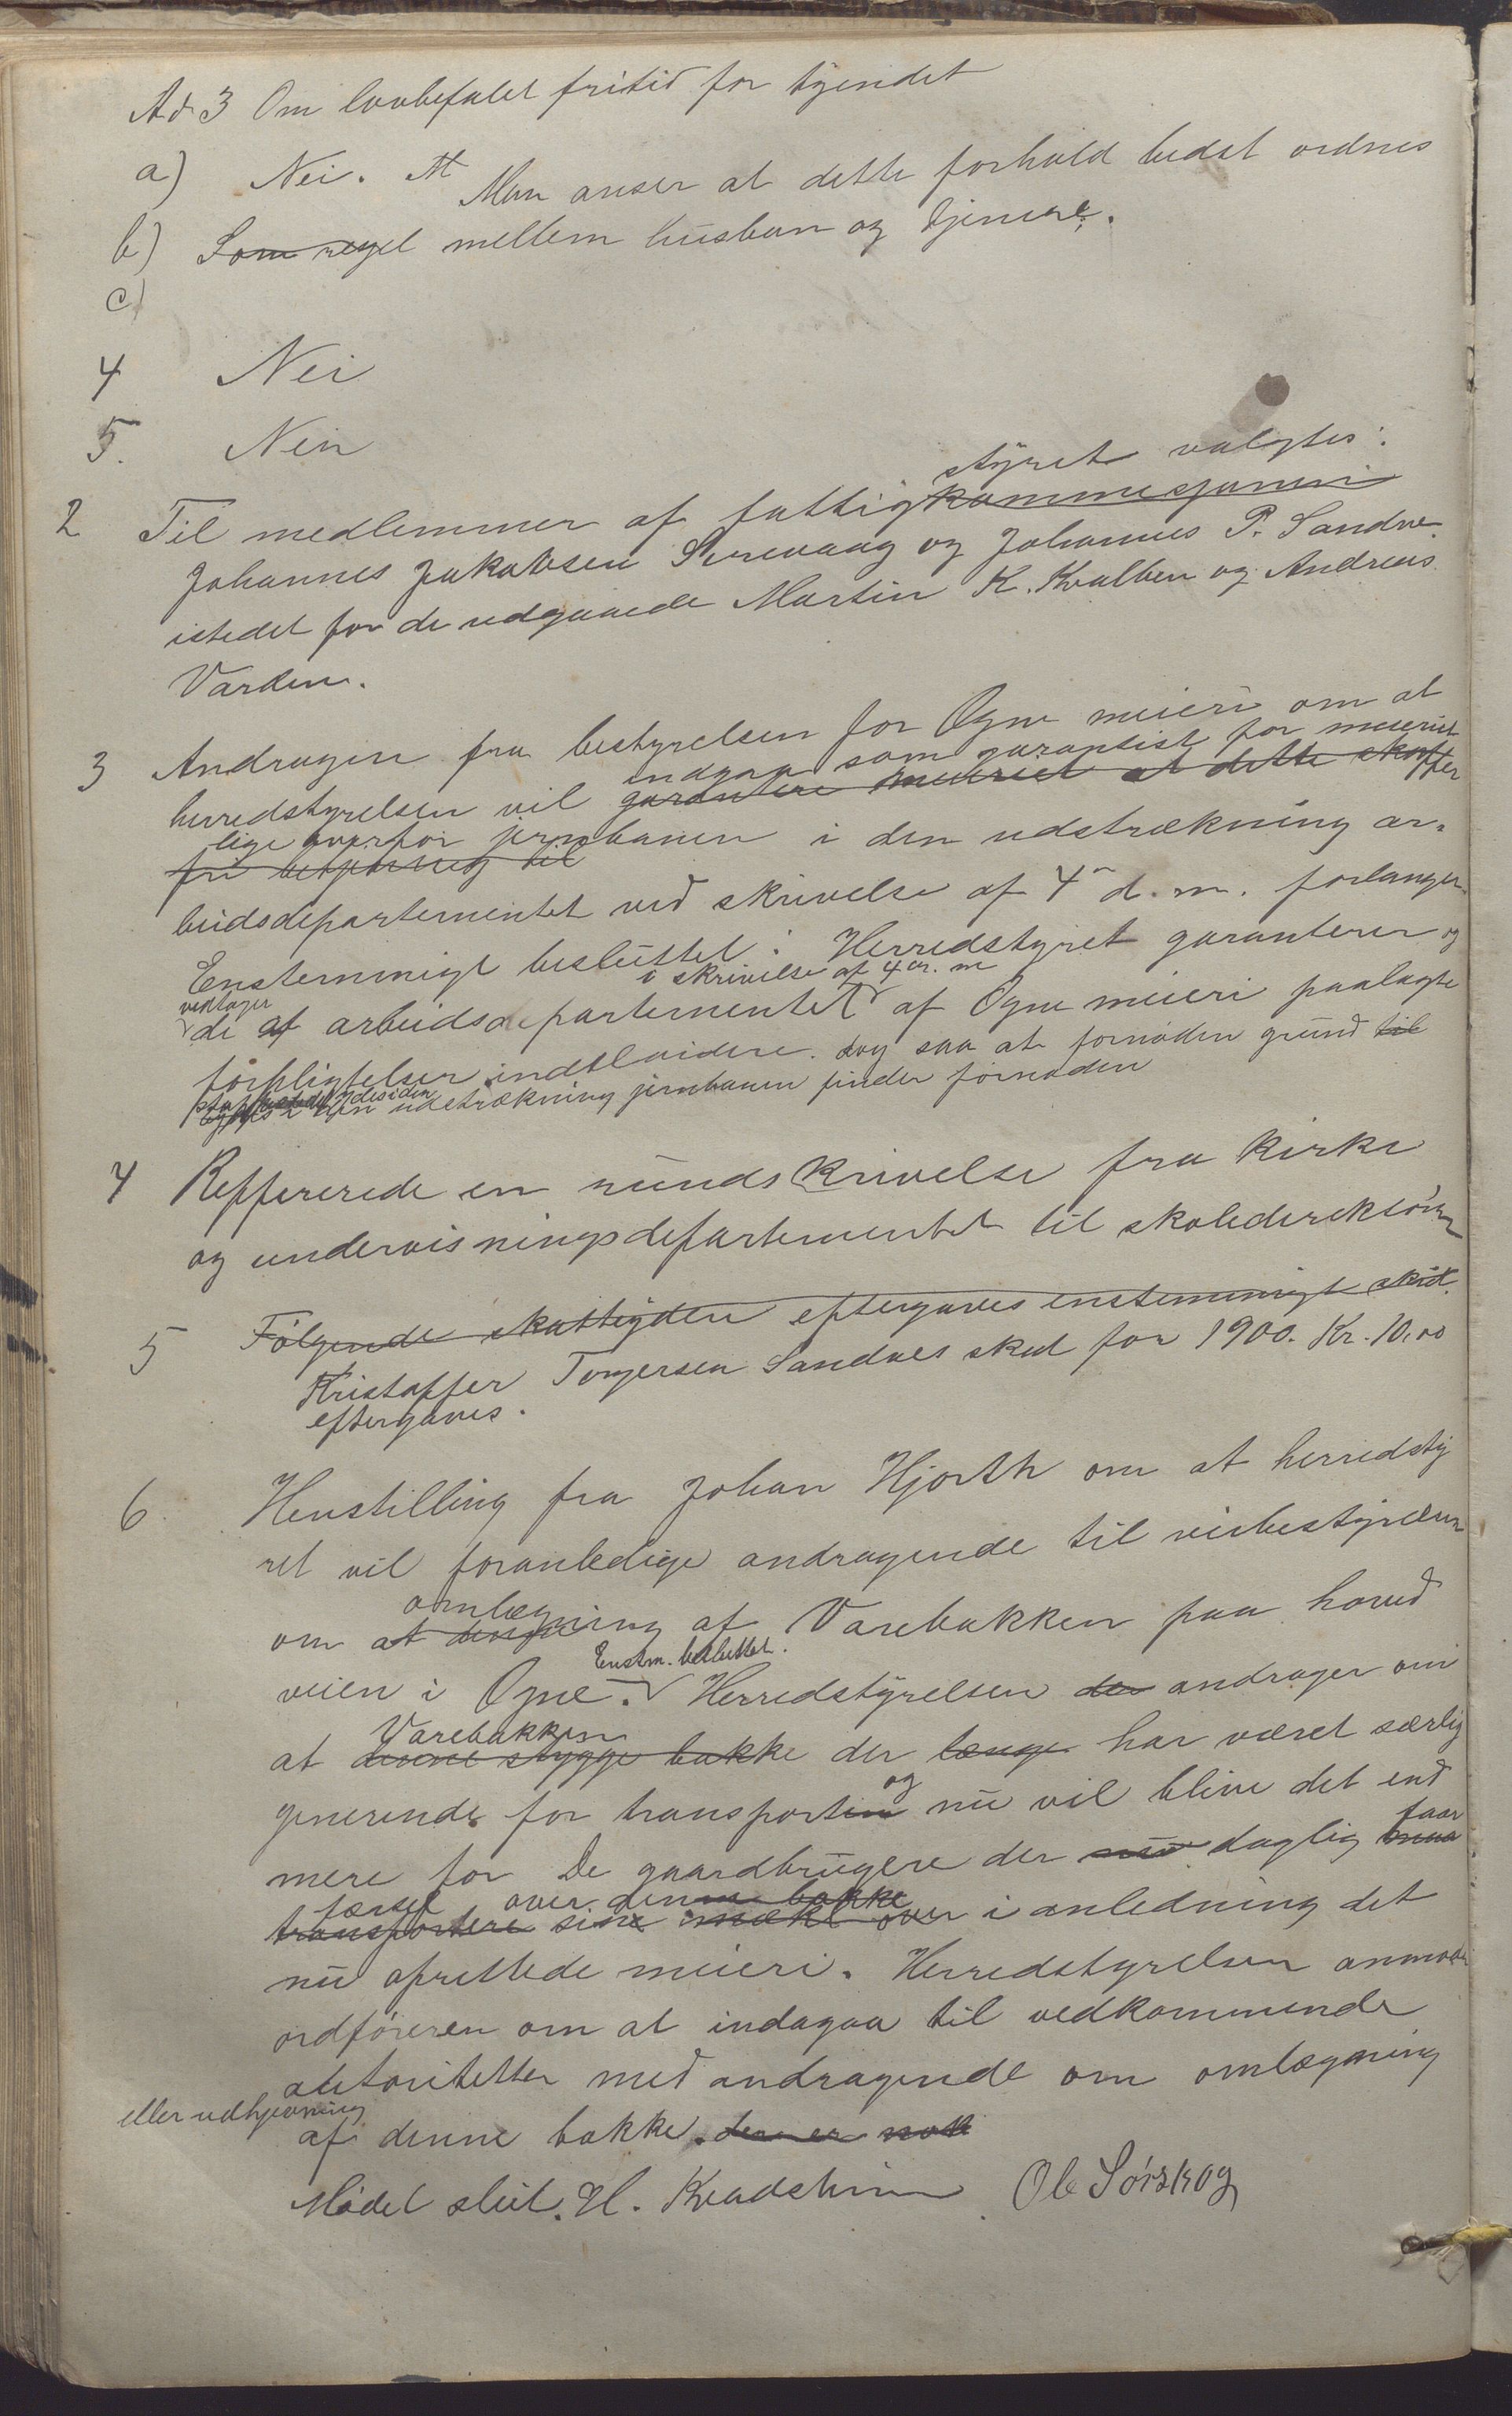 Ad 3 Om lovbefalet fritid for tyendet
a) Nei. M Man anser at dette forhold bedst ordnes
b) Som regel mellem husbon og tjenere.
c)
4 Nei
5. Nein
styret valgtes:
2 Til medlemmer af fattigkommesjonen
Johannes Jakobsen Sirevaag og Johannes P. Sandve
istedet for de udgaaede Martin K. Kvalben og Andreas
Varden.
3 Andragen fra bestyrelsen for Ogne meieri om at
indgaa som garantist for meieriet
herredstyrelsen vil garantere meieriet at dette skaffer
lige overfor jernbanen i den udstrækning ar-
fri til
beidsdepartementet ved skrivelse af 4de d.m. forlanger
Enstemmigt besluttet: Herredstyret garanterer og
vedtager i skrivelse af 4 ds. m
de af arbeidsdepartementet af Ogne meieri paalagte
forpligtelser indtil videre. dog saa at fornøden grund til
i den udstrækning jernbanen finder fornøden
4 Reffererede en rundskrivelse fra kirke
og undervisningsdepartementet til skoledirektører
5 Følgende skatteyden eftergaves enstemmigt skat.
Kristoffer Torgersen Sandves skat for 1900. Kr. 10.00
eftergaves.
6 Henstilling fra Johan Hjorth om at herredsty
ret vil foranledige andragende til veibestyrelsen
om at omlægning af Varebakken paa hoved
Enstm. besluttet.
veien i Ogne. Herredstyrelsen der andrager om
Varebakken
at denne stygge bakke der længe har været særlig
og
generende for transporten nu vil blive det end
faar
mere for De gaardbrugere der nu daglig maa
færsel over denne bakke
transportere sine melk over i anledning det
nu oprettede meieri. Herredstyrelsen anmoder
ordføreren om at indgaa til vedkommende
autoriteter med andragende om omlægning
eller udhjevning
af denne bakke. den er nok
Mødet slut. H. Kvadsheim Ole Sørskog